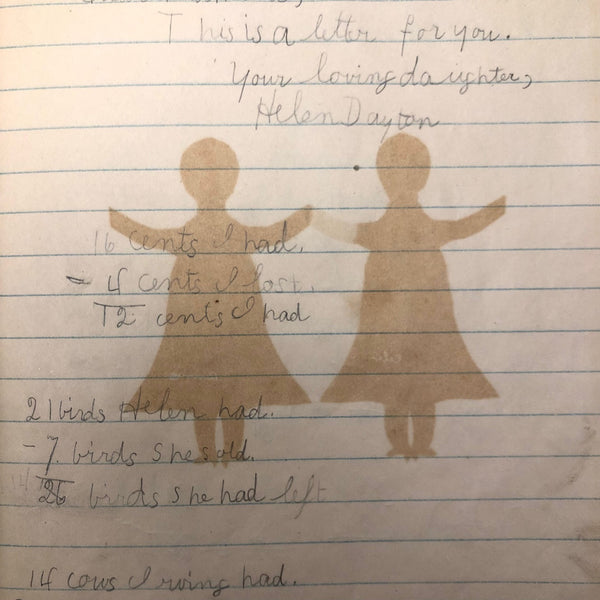 This is a letter for you.
Your loving daughter,
Helen Dayton
16 cents I had.
- 4 cents I lost.
12 cents I had
21 birds Helen had.
- 7. birds she sold.
14 birds she had left
14 cows Irving had.